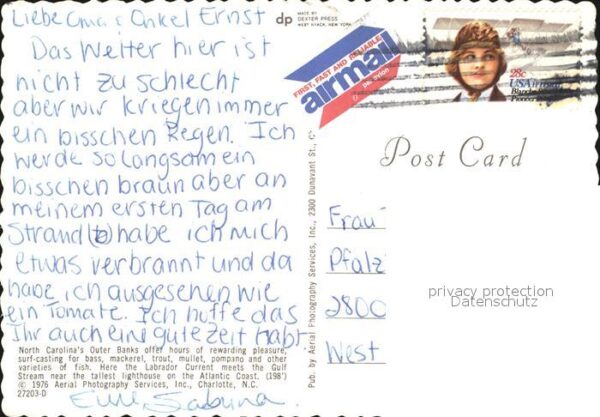 Liebe Oma & Onkel Ernst
Das Wetter hier ist
nicht zu schlecht
aber wir kriegen immer
ein bisschen Regen. Ich
werde so langsam ein
bisschen braun aber an
meinem ersten Tag am
Strand (t) habe ich mich
etwas verbrannt und da
habe ich ausgesehen wie
ein Tomate. Ich hoffe das
Ihr auch eine gute Zeit habt.
North Carolina's Outer Banks offer hours of rewarding pleasure,
surf-casting for bass, mackerel, trout, mullet, pompano and other
varieties of fish. Here the Labrador Current meets the Gulf
Stream near the tallest lighthouse on the Atlantic Coast. (198')
© 1976 Aerial Photography Services, Inc., Charlotte, N.C.
27203-D
Eure Sabrina
dp
MADE BY
DEXTER PRESS
WEST NYACK, NEW YORK
FIRST, FAST AND RELIABLE
airmail
par avion
28c
USAirmail
Pub. by Aerial Photography Services, Inc., 2300 Dunavant St.,
Post Card
Frau
Pfalz
2800
West
privacy protection
Datenschutz